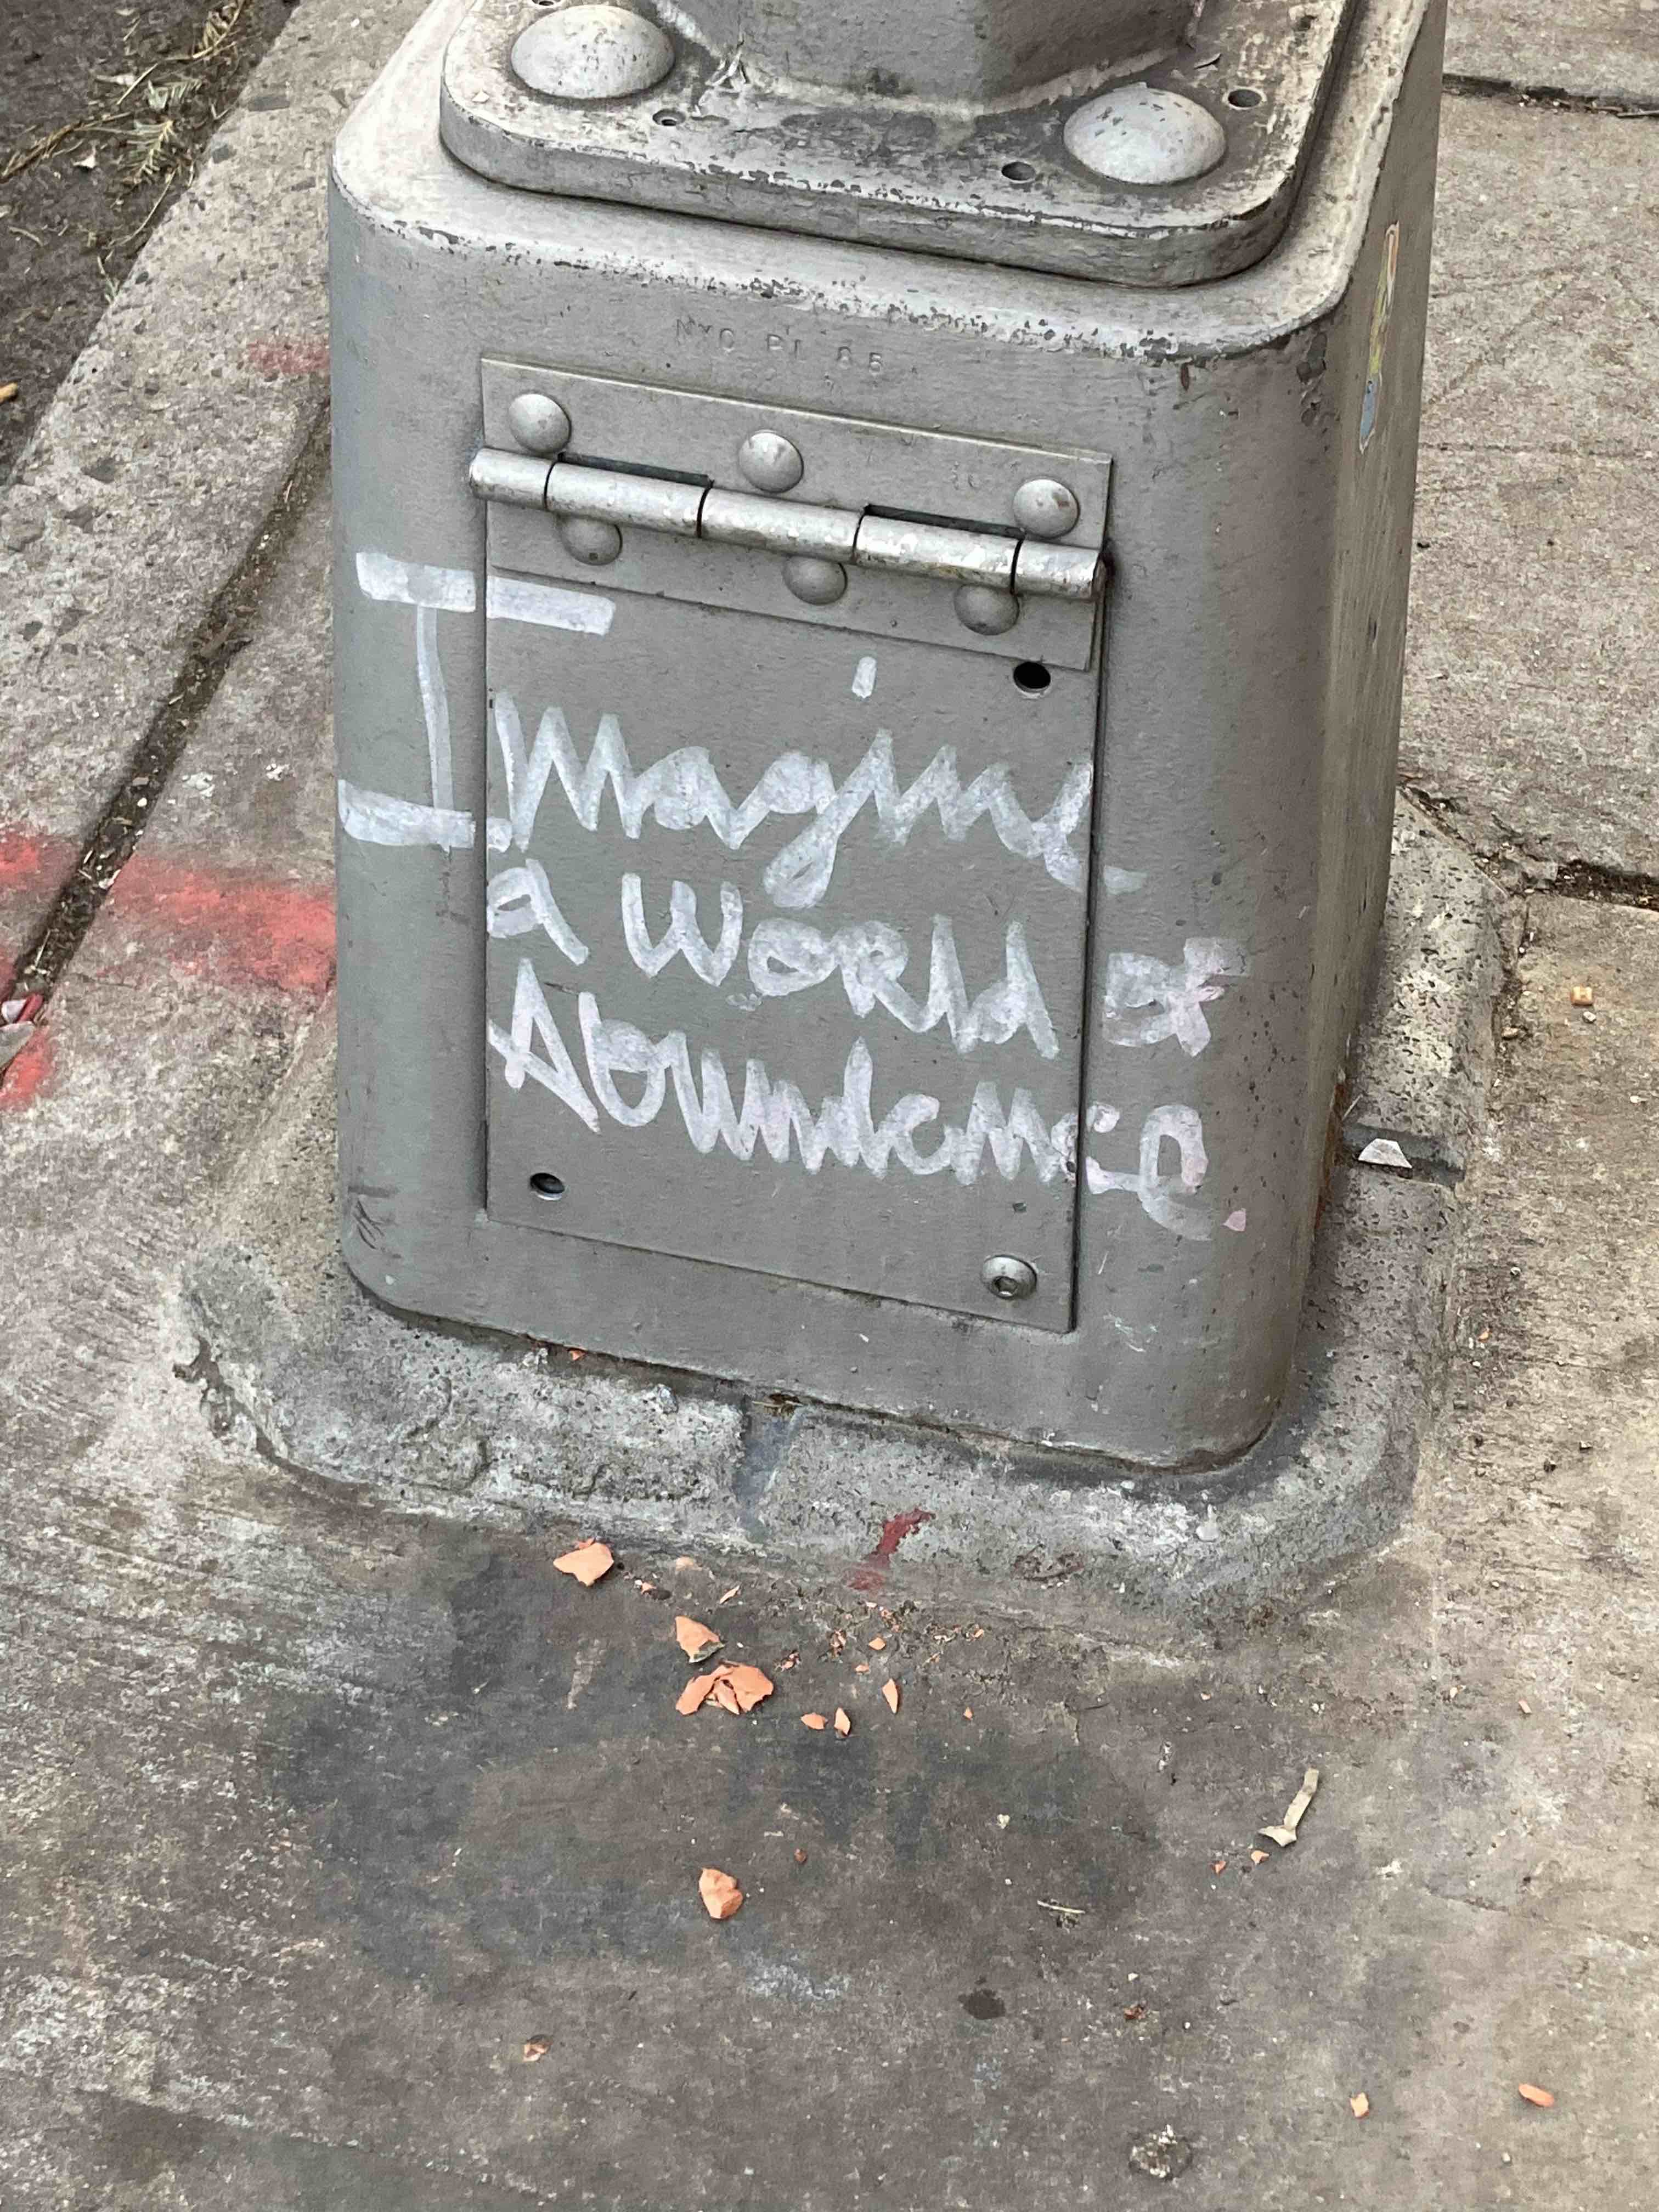 NYC PL 85
Imagine
a World of
Abundance.